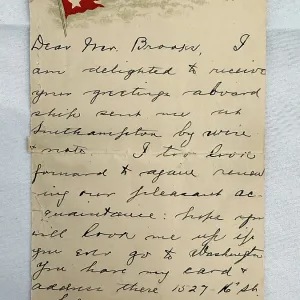 Dear Mr. Brooks, I
am delighted to receive
your greetings aboard
ship sent me at
Southampton by wire
& note. I too look
forward to again renew
ing our pleasant ac
quaintance: hope you
will look me up if
you ever go to Washington
You have my card &
address there 1527-16" St